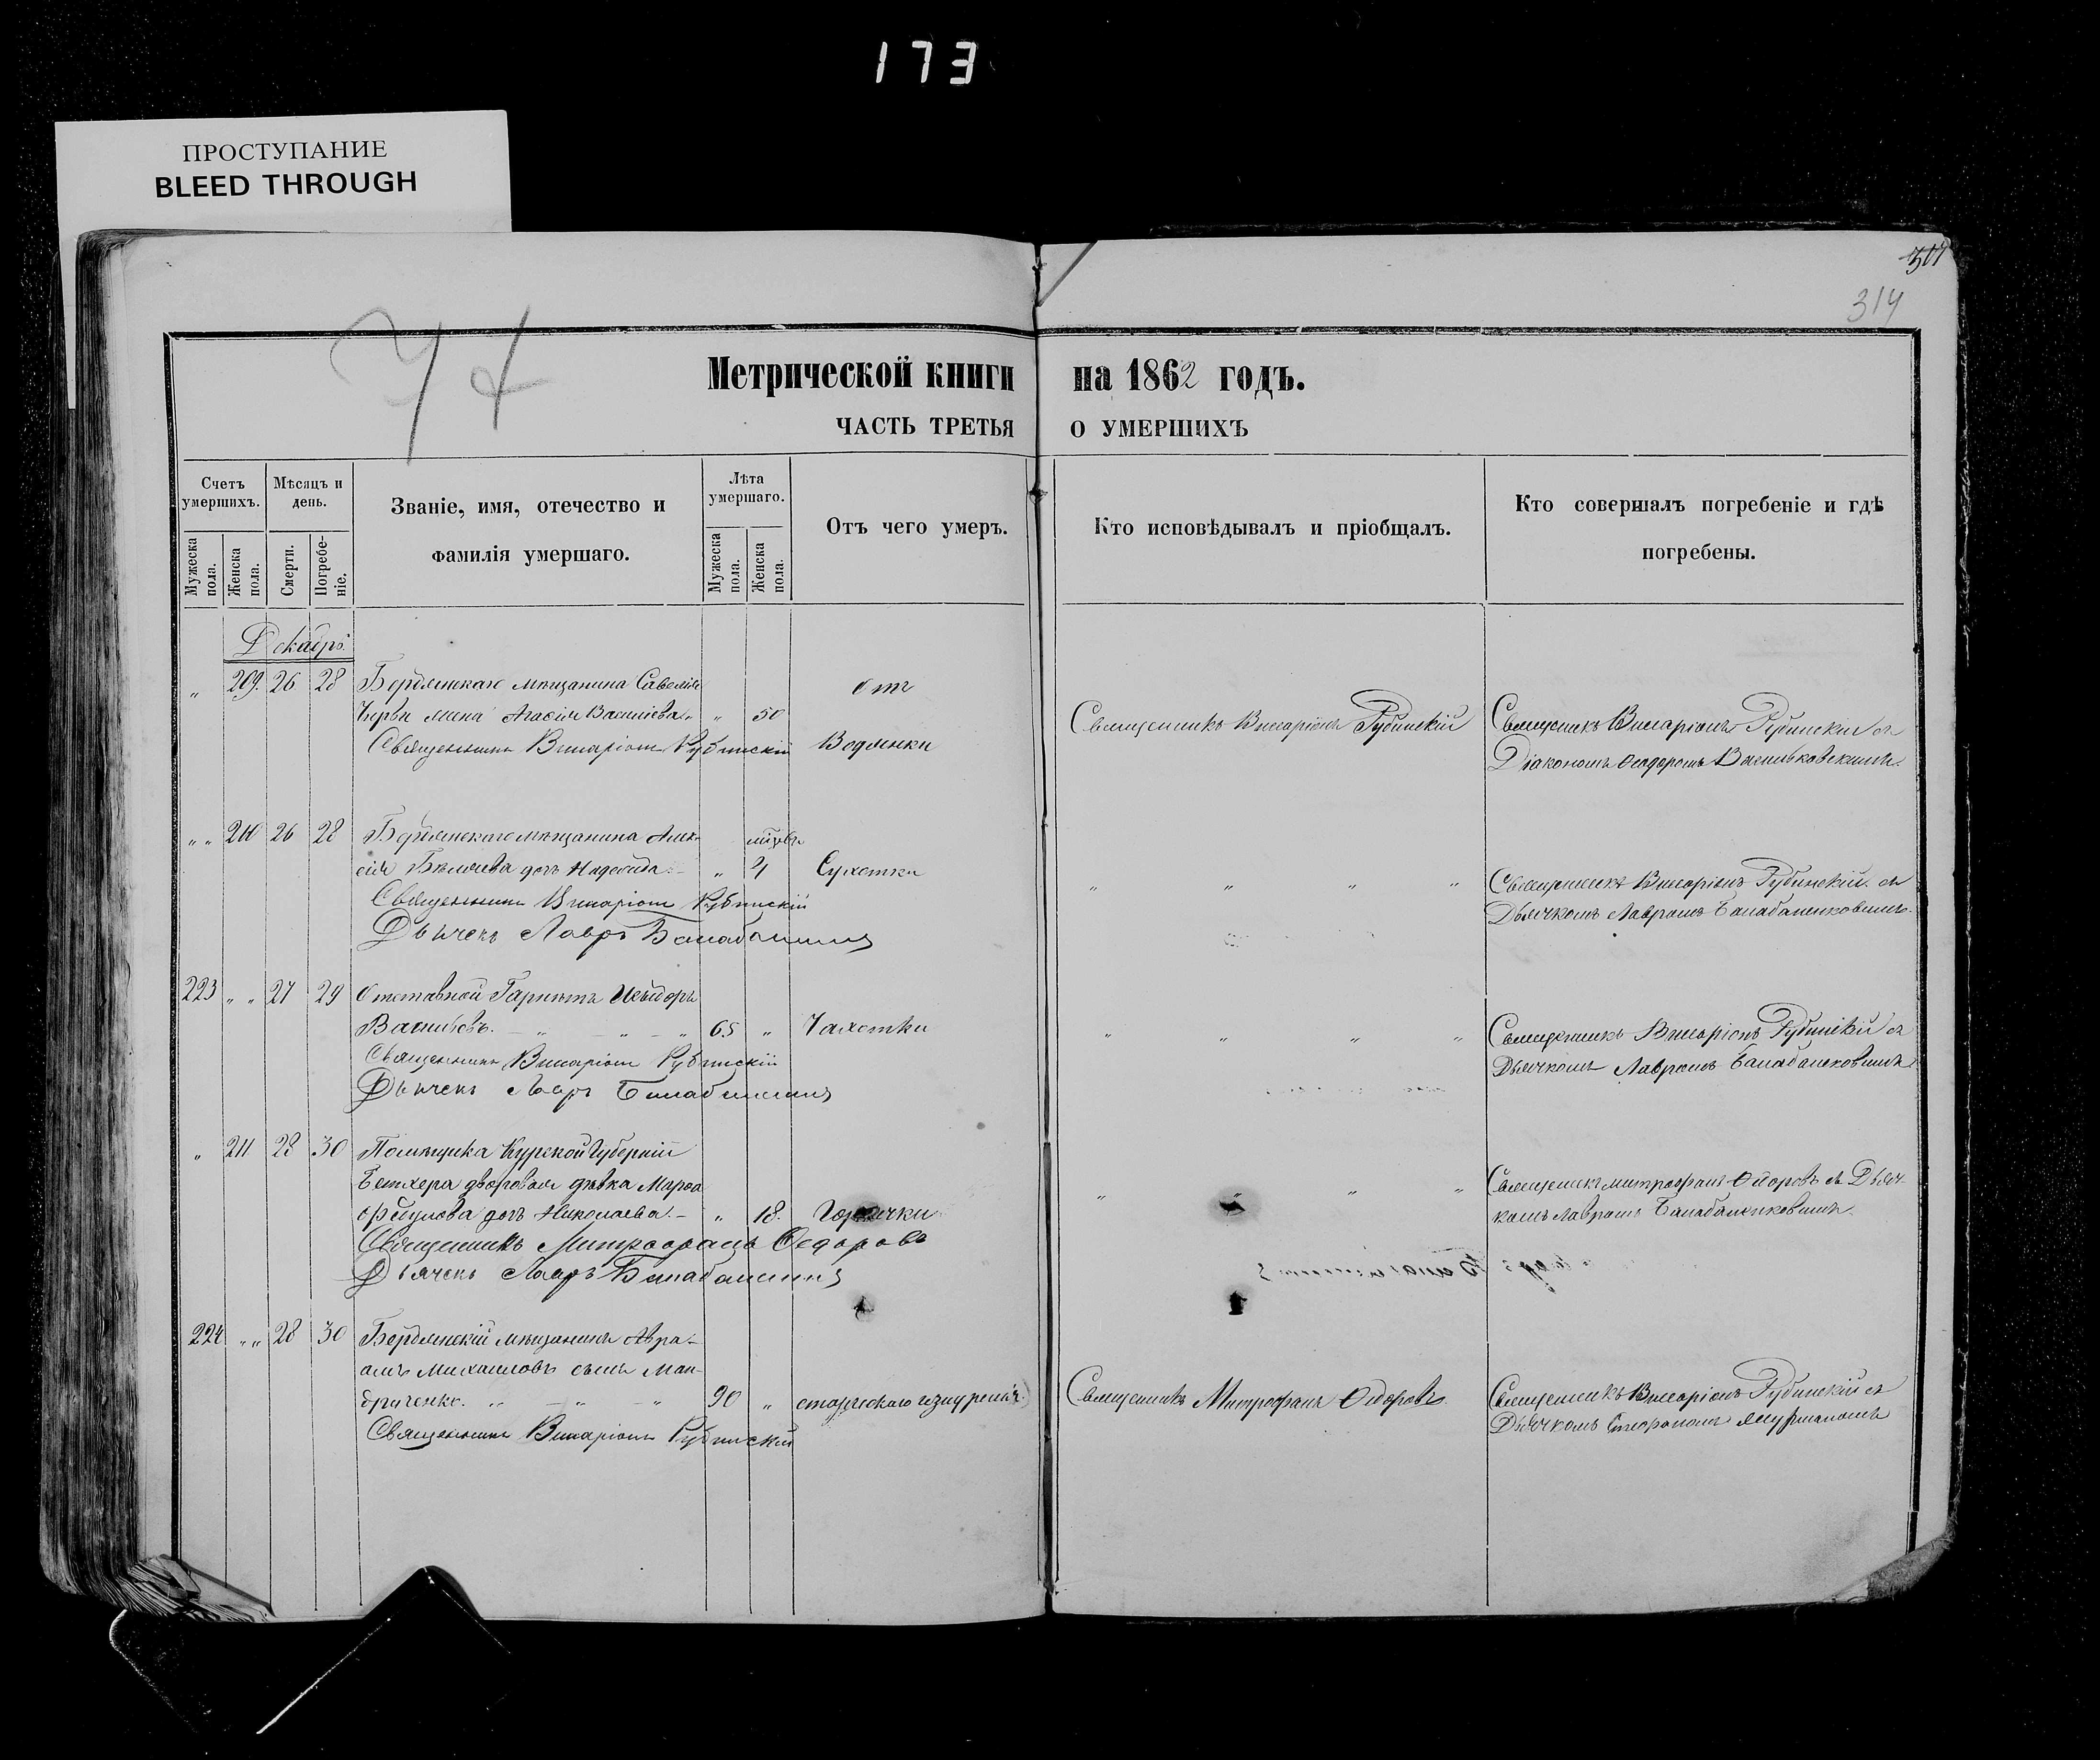 173
ПРОСТУПАНИЕ
BLEED THROUGH
314
Метрической книги на 1862 годъ.
ЧАСТЬ ТРЕТЬЯ О УМЕРШИХЪ
Счетъ умершихъ.
Мѣсяцъ и день.
Званіе, имя, отечество и фамилія умершаго.
Лѣта умершаго.
Отъ чего умеръ.
Кто исповѣдывалъ и пріобщалъ.
Кто совершалъ погребеніе и гдѣ погребены.
Мужеска пола.
Женска пола.
Смерти.
Погребеніе.
Мужеска пола.
Женска пола.
Декабрь
" 209. 26 28 Бердянскаго мѣщанина Савелія отъ
жена Васильева " 50
Священникъ Виссаріонъ Рубинскій Водянки
Священникъ Виссаріонъ Рубинскій
Священникъ Виссаріонъ Рубинскій съ
Діакономъ Ѳеодоромъ Васильковскимъ.
" " 210 26 28 Бердянскаго мѣщанина Алек-
сія Бѣляева дочь Надежда " 4 Сухотки
Священникъ Виссаріонъ Рубинскій
Дьячекъ Лавръ
" " " "
Священникъ Виссаріонъ Рубинскій съ
Дьячкомъ Лавромъ Балабаненковымъ.
223 " " 27 29 Отставной Исидоръ
Васильевъ. " " 65 " Чахотки
Священникъ Виссаріонъ Рубинскій
Дьячекъ Лавръ
" " " "
Священникъ Виссаріонъ Рубинскій съ
Дьячкомъ Лавромъ Балабаненковымъ
" 211 28 30 Помѣщика Курской Губерніи
дворовая дѣвка Марѳа
дочь Николаева. " 18. Горячки
Священникъ Митрофанъ Ѳедоровъ
Дьячекъ Лавръ
" " " "
Священникъ Митрофанъ Ѳедоровъ съ Дьяч-
комъ Лавромъ Балабаненковымъ
224 " " 28 30 Бердянскій мѣщанинъ Авра-
амъ Михаиловъ сынъ Ман-
дриченко. " " " 90 " старческаго изнуренія.
Священникъ Виссаріонъ Рубинскій
Священникъ Митрофанъ Ѳедоровъ.
Священникъ Виссаріонъ Рубинскій съ
Дьячкомъ